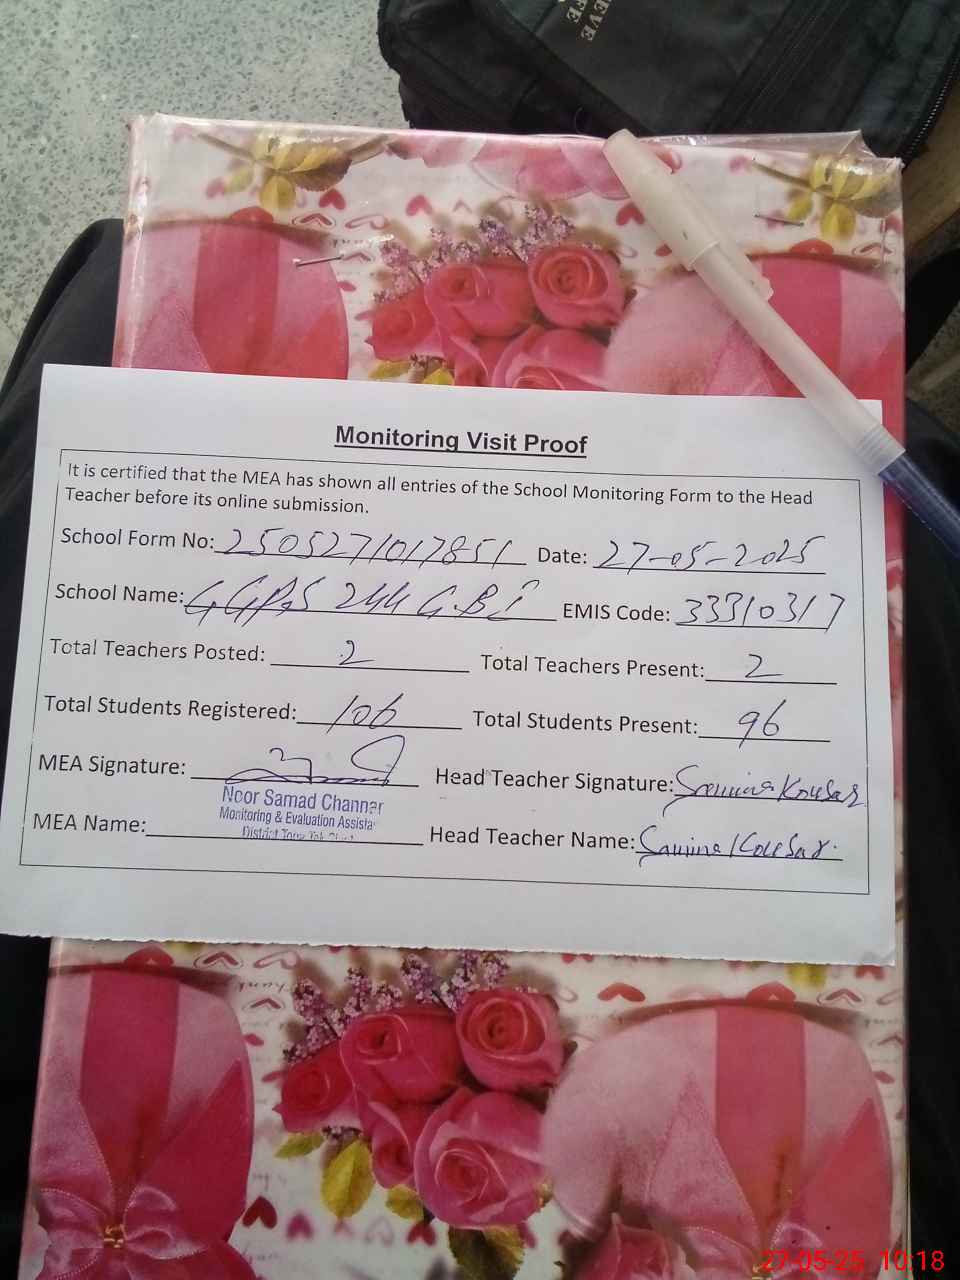 Monitoring Visit Proof
It is certified that the MEA has shown all entries of the School Monitoring Form to the Head
Teacher before its online submission.
School Form No: 2505271017851 Date: 27-05-2025
School Name: GGPS 244 G.B I EMIS Code: 33310317
Total Teachers Posted: 2 Total Teachers Present: 2
Total Students Registered: 106 Total Students Present: 96
MEA Signature: Head Teacher Signature: Samina Kousar
Noor Samad Channar
Monitoring & Evaluation Assista
District
MEA Name: Head Teacher Name: Samina Kousar.
27-05-25 10:18